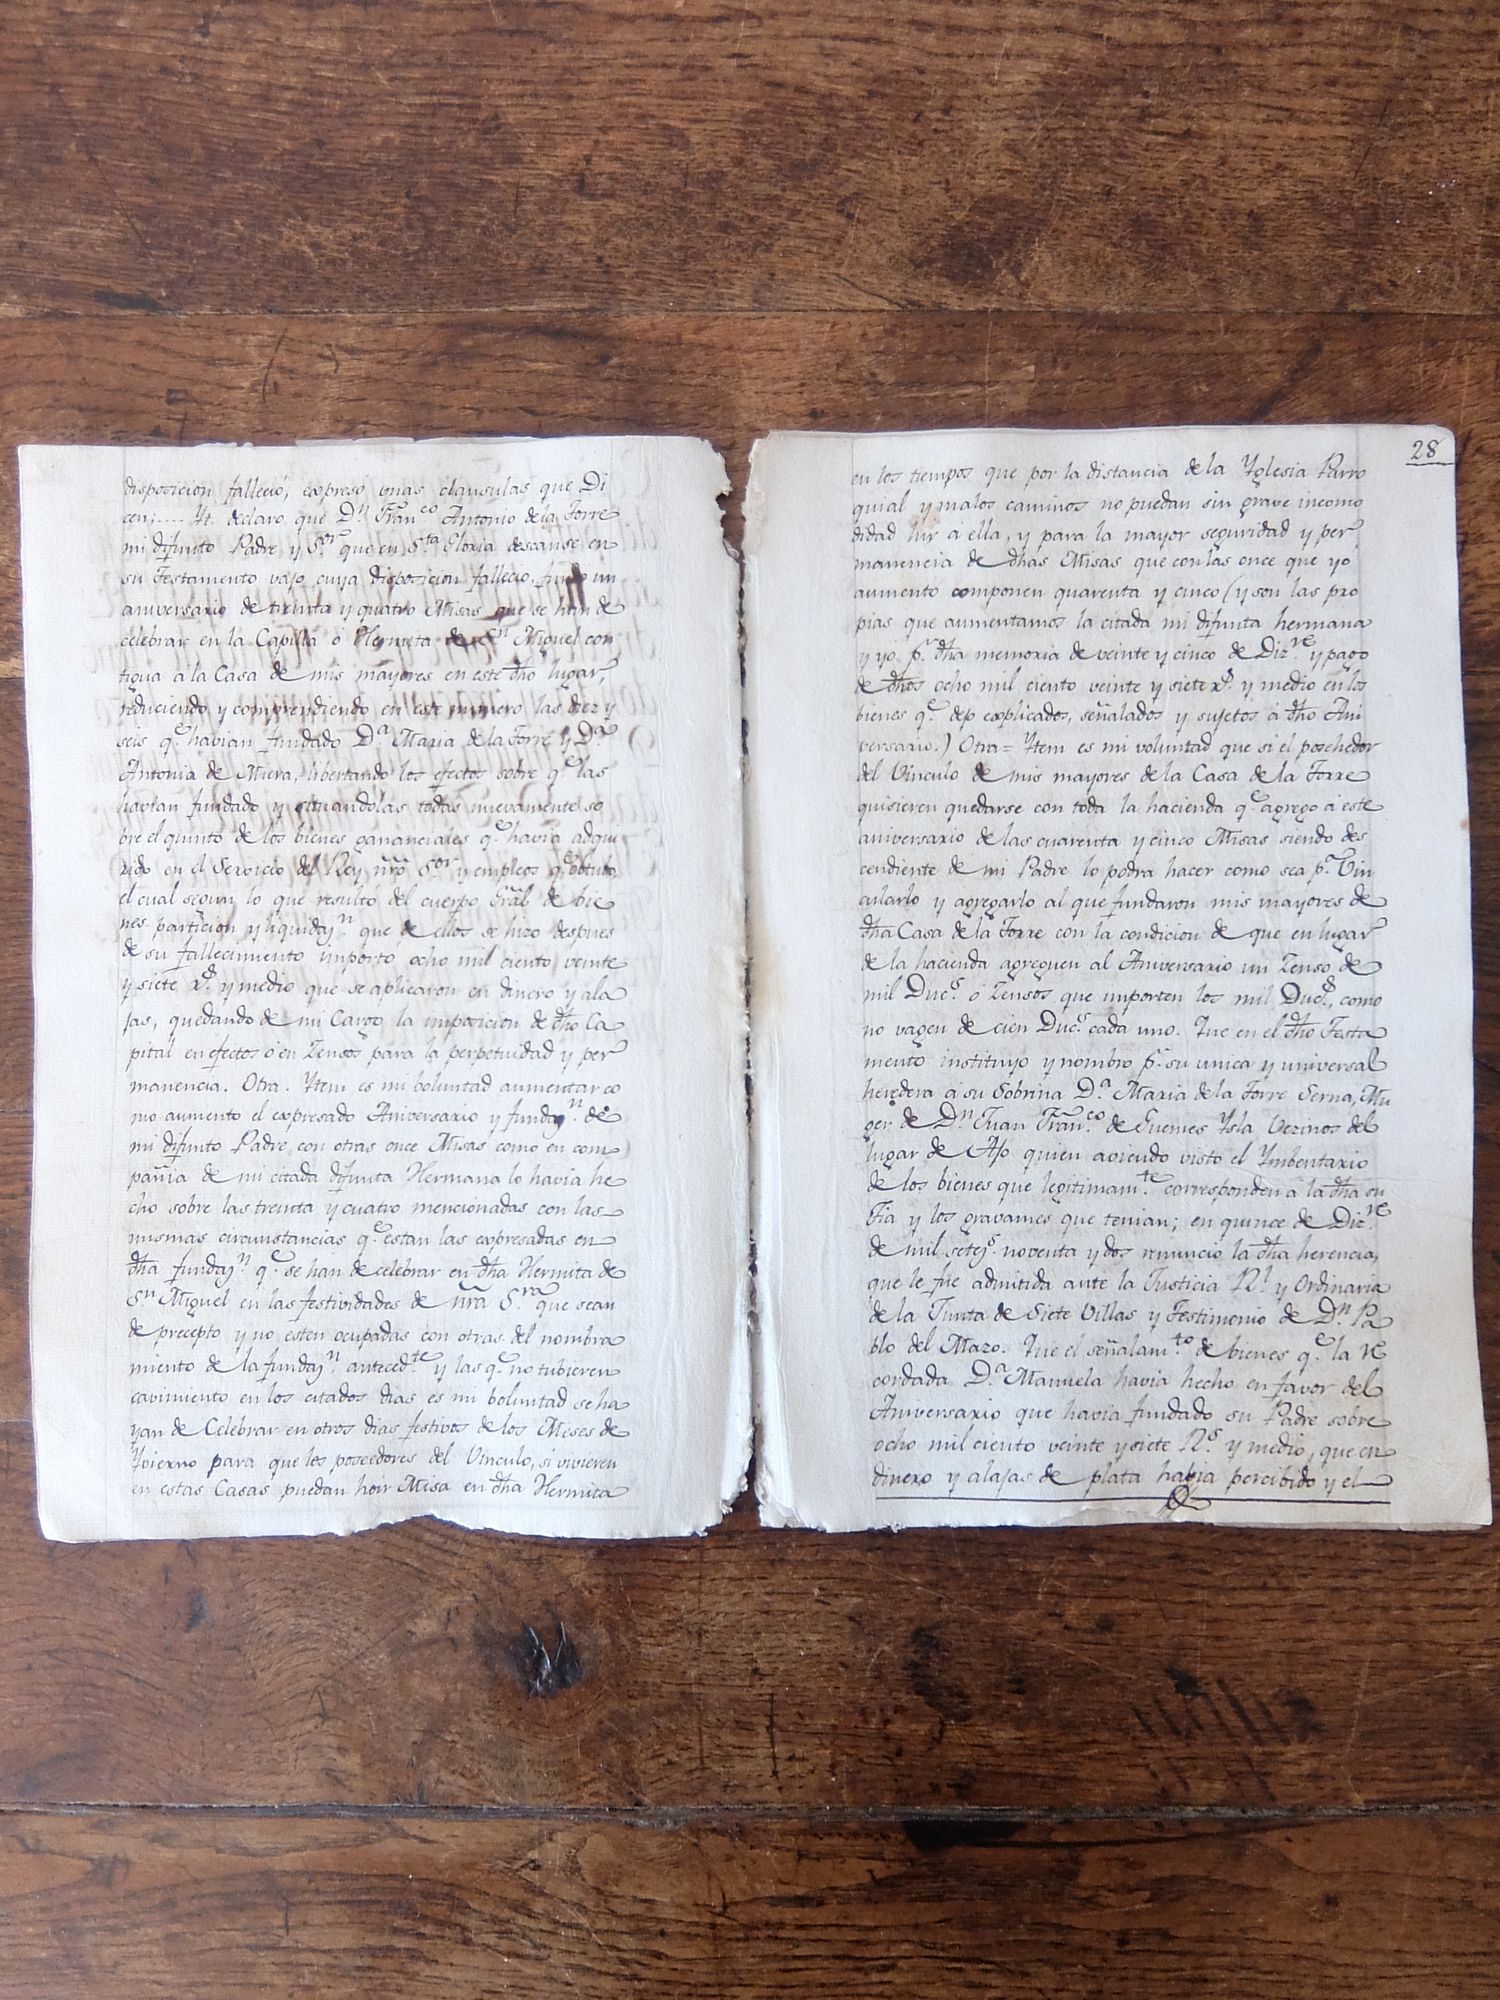 disposicion falleció, expresó unas clausulas que Di
cen;.... Yt. declaro que Dn. Franco Antonio de la Torre
mi difunto Padre y Sor. que en Sta Gloria descanse en
su Testamento vajo cuya disposicion fallecio, fundo un
aniversario de treinta y quatro Misas que se han de
celebrar en la Capilla o Hermita de Sn Miguel con
tigua a la Casa de mis mayores en este dho lugar,
reduciendo y comprendiendo en este numero las diez y
seis qe. havian fundado Da. Maria de la Torre y Da.
Antonia de Miera, libertando los efectos sobre qe. las
havian fundado y situandolas todas nuevamente so
bre el quinto de los bienes gananciales qe. havia adqui
rido en el Servicio del Rey ñro Sor y empleos qe. obtubo,
el cual segun lo que resultó del cuerpo Gral de bie
nes particion y liquidaзn. que de ellos se hizo despues
de su fallecimiento importó ocho mil ciento veinte
y siete rs. y medio que se aplicaron en dinero y ala
jas, quedando de mi Cargo la imposicion de dho Ca
pital en efectos ó en Zensos para la perpetuidad y per
manencia. Otra. Ytem es mi boluntad aumentar co
mo aumento el expresado Aniversario y fundaзn. de
mi difunto Padre con otras once Misas como en com
pañia de mi citada difunta Hermana lo havia he
cho sobre las treinta y cuatro mencionadas con las
mismas circunstancias qe. estan las expresadas en
dha fundaзn. qe. se han de celebrar en dha Hermita de
Sn. Miguel en las festividades de ñra Sra. que sean
de precepto y no esten ocupadas con otras del nombra
miento de la fundaзn. antecedte. y las qe. no tubieren
cavimiento en los citados dias es mi boluntad se ha
yan de Celebrar en otros dias festivos de los Meses de
Yvierno para que los poseedores del Vinculo, si vivieren
en estas Casas puedan hoir Misa en dha Hermita
28
en los tiempos que por la distancia de la Yglesia Parro
quial y malos caminos no puedan sin grave incomo
didad hir á ella, y para la mayor seguridad y per
manencia de dhas Misas que con las once que yo
aumento componen quarenta y cinco (y son las pro
pias que aumentamos la citada mi difunta hermana
y yo pr. dha memoria de veinte y cinco de Dizre. y pago
de dhos ocho mil ciento veinte y siete rs. y medio en los
bienes qe. dejo explicados, señalados y sujetos á dho Ani
versario.) Otra= Ytem es mi voluntad que si el poschedor
del Vinculo de mis mayores de la Casa de la Torre
quisieren quedarse con toda la hacienda qe. agrego á este
aniversario de las cuarenta y cinco Misas siendo des
cendiente de mi Padre lo podra hacer como sea pa. Vin
cularlo y agregarlo al que fundaron mis mayores de
dha Casa de la Torre con la condicion de que en lugar
de la hacienda agreguen al Aniversario un Zenso de
mil Ducs. ó Zensos que importen los mil Ducs., como
no vagen de cien Ducs. cada uno. Que en el dho Testa
mento instituyo y nombro pr. su unica y universal
heredera á su Sobrina Da. Maria de la Torre Serna, Mu
ger de Dn. Juan Franco. de Guemes Ysla Vezinos del
lugar de Ajo quien aviendo visto el Ymbentario
de los bienes que legitimamte. corresponden á la dha su
Tia y los gravames que tenian; en quince de Dizre.
de mil setejs. noventa y dos renuncio la dha herencia,
que le fue admitida ante la Justicia Rl. y Ordinaria
de la Junta de Siete Villas y Testimonio de Dn. Pa
blo del Mazo. Que el señalamto. de bienes qe. la re
cordada Da. Manuela havia hecho en favor del
Aniversario que havia fundado su Padre sobre
ocho mil ciento veinte y siete Rs. y medio, que en
dinero y alajas de plata habia percibido y el